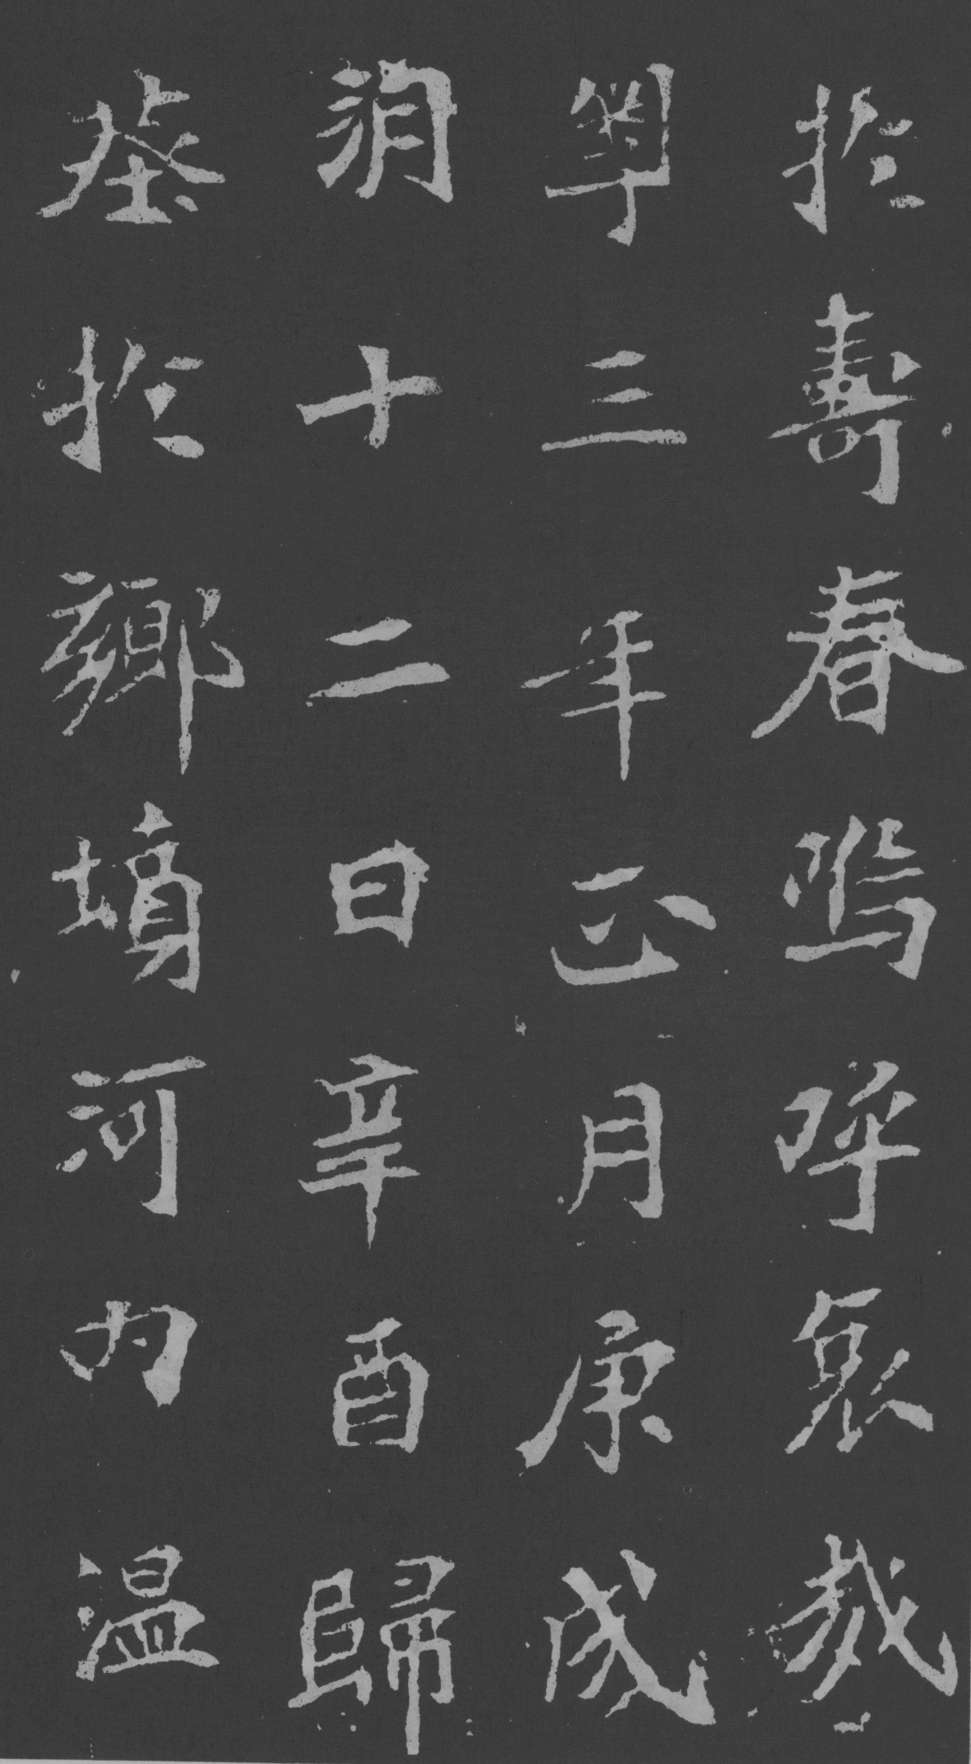 於壽春嗚呼哀哉
粵三年正月庚戌
朔十二日辛酉歸
葬於鄉墳河內溫